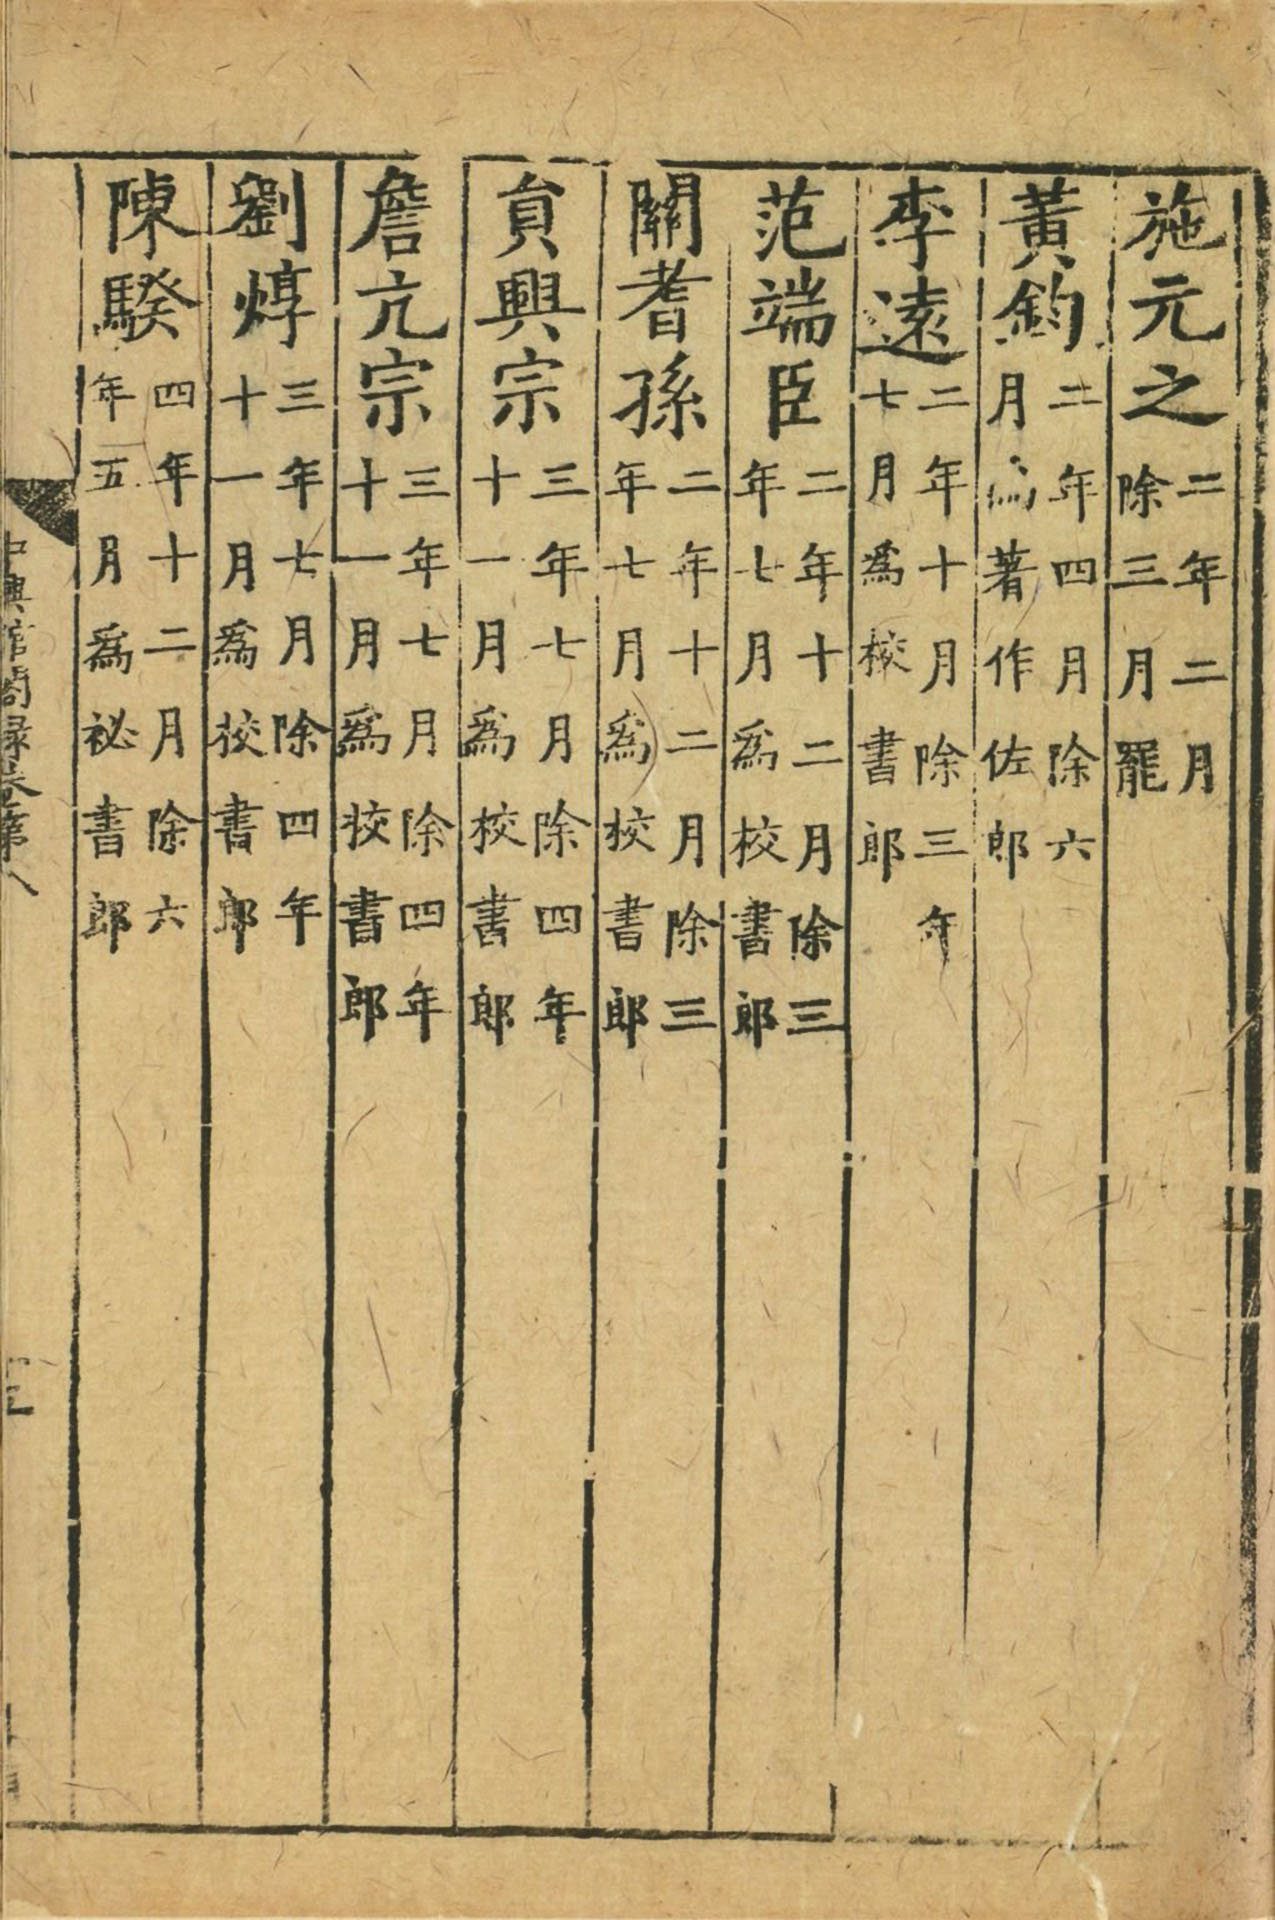 施元之二年二月除三月罷
黃鈞二年四月除六月爲著作佐郎
李遠二年十月除三年七月爲校書郎
范端臣二年十二月除三年七月爲校書郎
關耆孫二年十二月除三年七月爲校書郎
貟興宗三年七月除四年十一月爲校書郎
詹亢宗三年七月除四年十一月爲校書郎
劉焞三年七月除四年十一月爲校書郎
陳騤四年十二月除六年五月爲祕書郎
中興館閣録卷第八